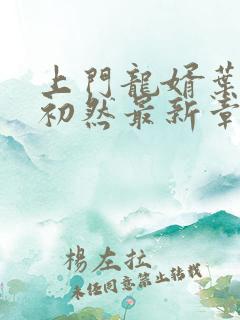 上門龍婿葉
初然最新章
楊左拉
未任同意禁止轉載